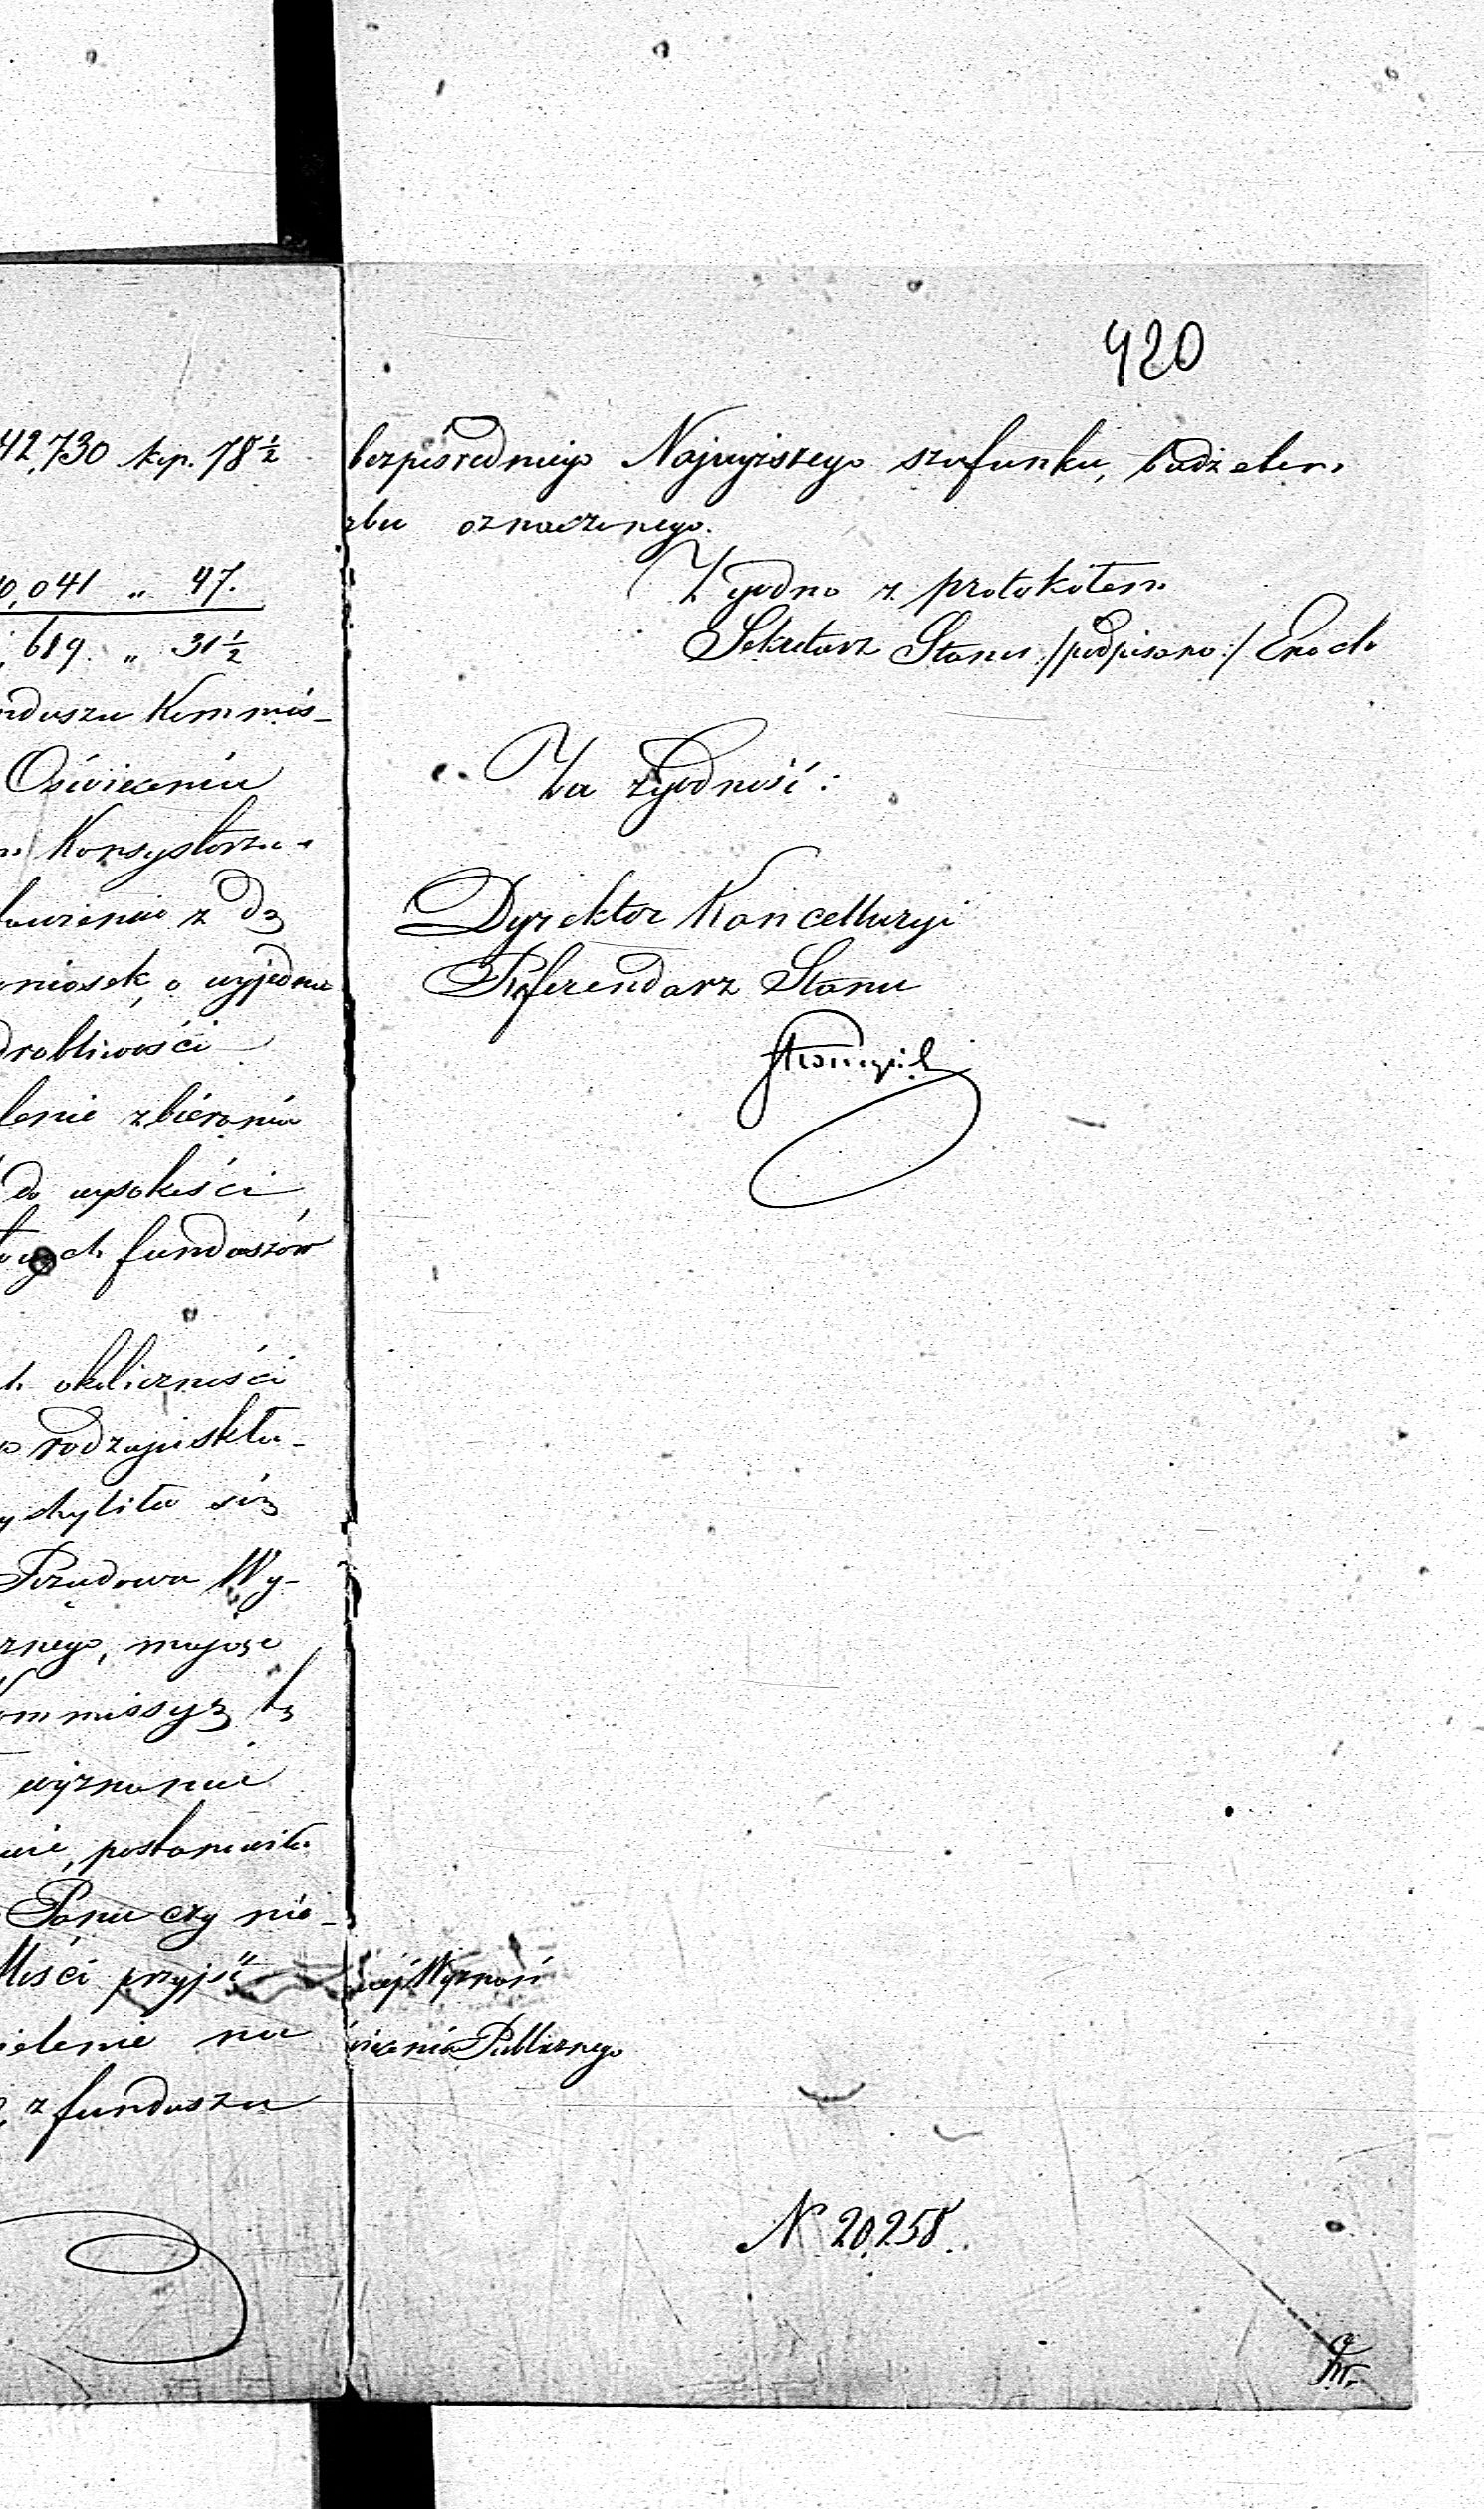 42,730 kop. 78½
0,041 „ 47.
,689. „ 31½
nduszu Kommis-
Oświecenia
Konsystorzu
tawienie z dz
niosek, o wyjedna
drobliwości
lenie zbierania
do wysokości
owych funduszów
h okoliczności
rodzaju skła-
chyliła się
Rządowa Wy-
znego, mając
ommissyą tę
wyznanie
wie, postanowiła
Panu czy nie-
Mości przyjść
ielenie na
z funduszu
420
bezpośredniego Najwyższego szafunku, bądź eter
zbu oznaczonego.
Zgodno z protokółem
Sekretarz Stanu /:podpisano:/ Enoch
Za zgodność:
Dyrektor Kancellaryi
Referendarz Stanu
nej Wyznań
wiecenia Publicznego
N 20,258.